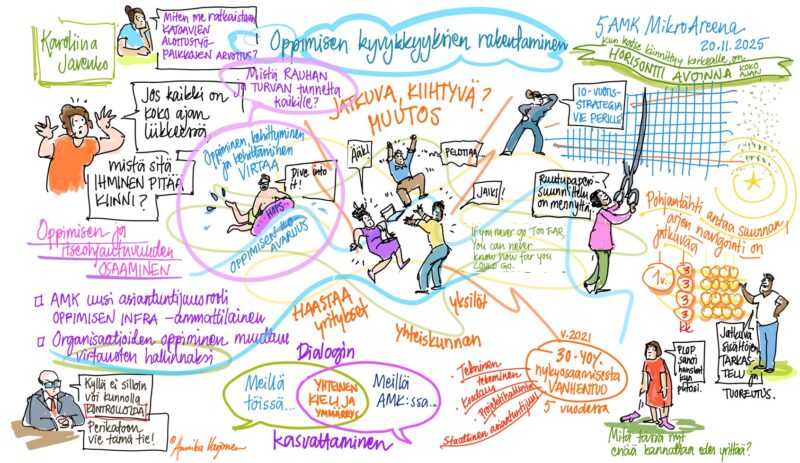 Karoliina
Javenko
Miten me ratkaistaan
KATOAVIEN
ALOITUSTYÖ-
PAIKKOJEN ARVOITUS?
Oppimisen kyvykkyyksien rakentaminen
5 AMK MikroAreena
20.11.2025
Kun katse kiinnittyy korkealle, on
HORISONTTI AVOINNA KOKO
AJAN
Mistä RAUHAN
JA TURVAN tunnetta
kaikille?
JATKUVA, KIIHTYVÄ?
MUUTOS
10-VUOTIS-
STRATEGIA
VIE PERILLE!
Jos kaikki on
KOKO AJAN
LIIKKEESSÄ
mistä sitä
IHMINEN PITÄÄ
KIINNI?
Oppiminen, kehittyminen
ja kehittäminen
VIRTAA
Dive into
it!
HOPS
OPPIMISEN
AVARUUS
ÄÄK!
PELOTTAA...
JAIKS!
Ruutupaperi-
suunnittelu
on mennyttä.
If you never go TOO FAR,
you can never
know how far you
COULD GO.
Pohjantähti antaa suunnan
arjen navigointi on
jatkuvaa
1v.
3
3
3
3
kk
Oppimisen ja
itseohjautuvuuden
OSAAMINEN
AMK uusi asiantuntijuusrooli
OPPIMISEN INFRA-ammattilainen
Organisaatioiden oppiminen muuttuu
virtausten hallinnaksi
HAASTAA
yritykset
yksilöt
yhteiskunnan
Jatkuva
sisältöjen
TARKAS-
TELU ja
TUOREUTUS.
v. 2021
30-40%
nykyosaamisesta
VANHENTUU
5 vuodessa
Tekninen
tekeminen
Koodaus
Projektihallinta
Staattinen asiantuntijuus
PLOP,
sanoi
hanskat
kun
putosi.
Mitä tässä nyt
enää kannattaa edes yrittää?
Kyllä ei silloin
voi kunnolla
KONTROLLOIDA!
Perikatoon
vie tämä tie!
Dialogin
Meillä
töissä...
YHTEINEN
KIELI JA
YMMÄRRYS
Meillä
AMK:ssa...
kasvattaminen
©Annika Varjonen